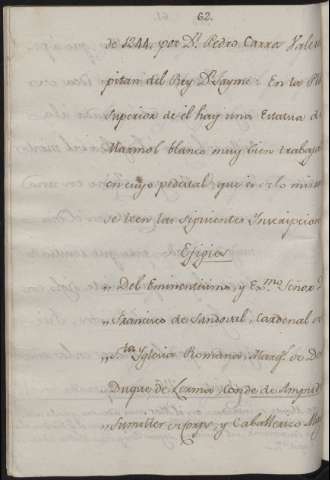 62.
de 1244, por Dn. Pedro Carroz Valen
pitan del Rey Dn. Jayme: En la
Superior de él hay una Estatua d
Marmol blanco muy bien trabaja
en cuyo pedestal, que es de lo mism
se leen las siguientes Inscripcion
Efigies
„ Del Eminentisimo, y Ex.mo Señor
„ Francisco de Sandoval, Cardenal
„ S.ta Yglesia Romana, Marq.s de De
„ Duque de Lerma, Conde de Ampud
„ Sumiller Corps, y Caballerizo May